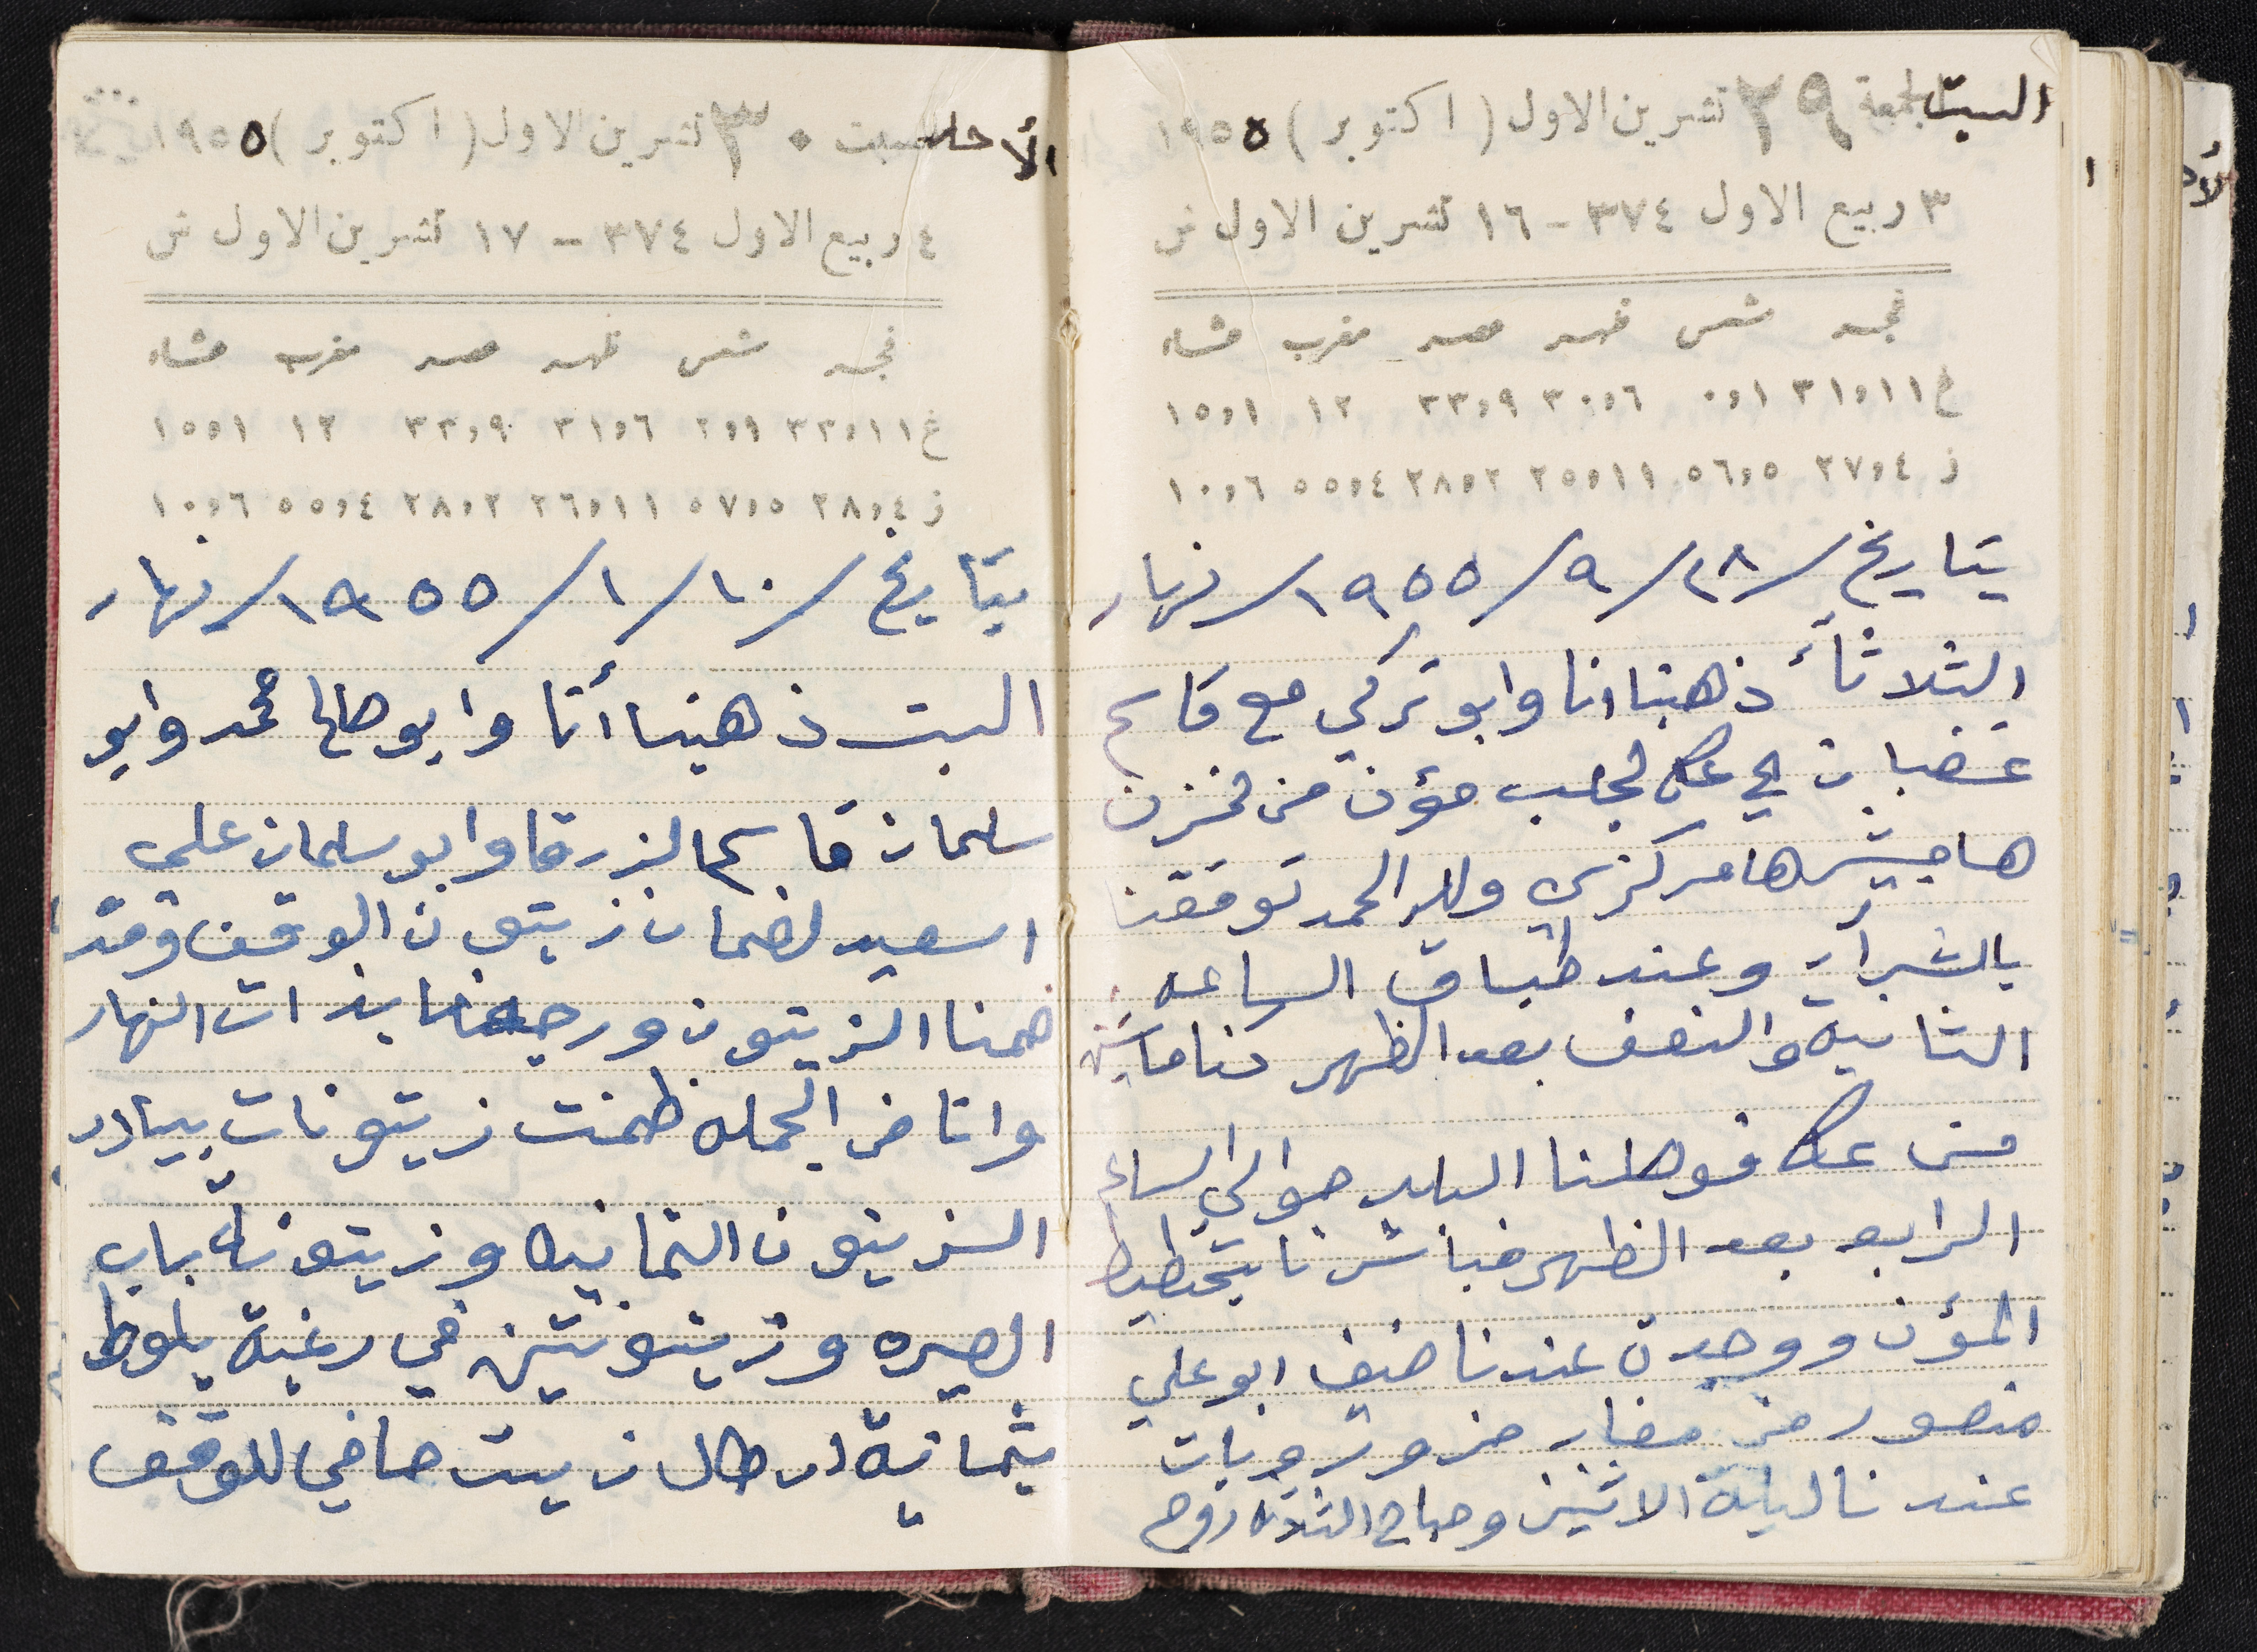 السبت الجمعة ٢٩ تشرين الاول ( اكتوبر ) ١٩٥٥
٣ ربيع الاول ٣٧٤ - ١٦ تشرين الاول ش
فجر شمس ظهر عصر مغرب عشاء
غ ٣١,١١ ٠,١ ٣٠,٦ ٣٣,٩ ١٢ ١٥,١
ز ٢٧,٤ ٥٦,٥ ٢٥,١١ ٢٨,٢ ٥٥,٤ ١٠,٦
بتاريخ / ١٨ / ٩ / ١٩٥٥ / نهار
الثلاثاء ذهبنا انا وابو تركي مع قاسم
غضبان الى عكا لجلب مؤن من مخزن
هامشبير هامركزي ولله الحمد توفقنا
بالشراء وعند طباق الساعه
الثانية والنصف بعد الظهر كنا ماشين
من عكا فوصلنا البلد حوالي الساعه
الرابعه بعد الظهر فباشرنا بتحطيط
المؤن ووجدت عندنا ضيف ابو علي
منصور من مغاير حزور وبات
عندنا ليلة الاثنين وصباح الثلاثه روح
الأحد السبت ٣٠ تشرين الاول ( اكتوبر ) ١٩٥٥
٤ ربيع الاول ٣٧٤ - ١٧ تشرين الاول ش
فجر شمس ظهر عصر مغرب عشاء
غ ٣٣,١١ ٢,١ ٣١,٦ ٣٣,٩ ١٢ ١٥,١
ز ٢٨,٤ ٥٧,٥ ٢٦,١١ ٢٨,٢ ٥٥,٤ ١٠,٦
بتاريخ / ١٠ / ١ / ١٩٥٥ / نهار
السبت ذهبنا أنا وابو صالح محمد وابو
سلمان قاسم الزرقا وابو سلمان علي
اسعيد لضمان زيتون الوقف وقد
ضمنا الزيتون ورجعنا بذات النهار
وانا من الجمله ظمنت زيتونات بيادر
الزيتون الثمانيه وزيتونة باب
الصيره وزيتونتين في رغبة بلوط
بثمانية ارطال زيت صافي للوقف